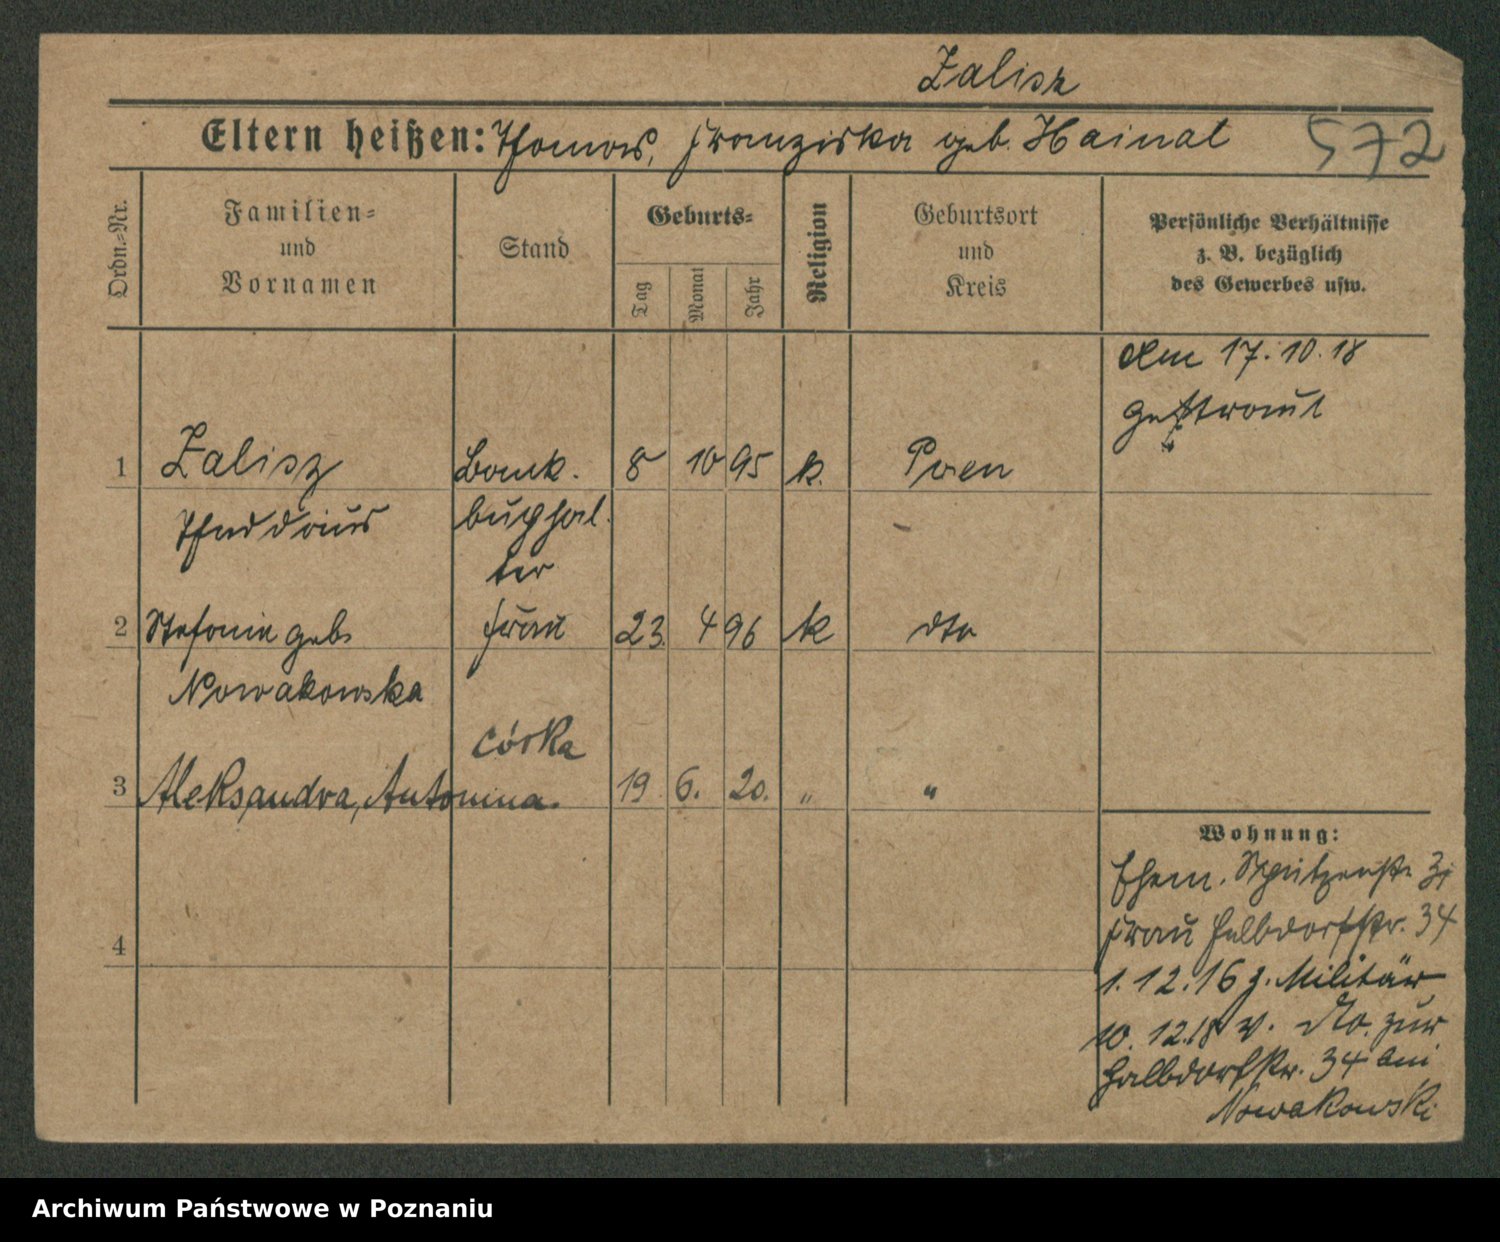 Zalisz
Eltern heißen: Thomas, Franziska geb. Hainat
572
Ordn.-Nr.
Familien-
und
Vornamen
Stand
Geburts-
Tag
Monat
Jahr
Religion
Geburtsort
und
Kreis
Persönliche Verhältnisse
z. B. bezüglich
des Gewerbes usw.
Am 17.10.18
getraut
1 Zalisz Bank- 8 10 95 k. Posen
Thaddäus buchhal-
ter
2 Stefanie geb. Frau 23. 4 96 k dto
Nowakowska
córka
3 Aleksandra, Antonina. 19. 6. 20. " "
4
Wohnung:
Ehem. Schützenstr. 31
Frau Halbdorfstr. 34
1.12.16 z. Militär
10.12.18 v. dto. zur
Halbdorfstr. 34 bei
Nowakowski
Archiwum Państwowe w Poznaniu